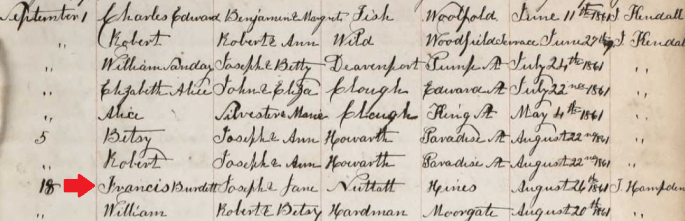 September 1 Charles Edward Benjamin & Margret Fish Woolfold June 11th 1861 J Kendall
" Robert Robert & Ann Wild Woodfield Terrace June 27th " J Kendall
" William Sunday Joseph & Betty Deavenport Pump St July 24th 1861 "
" Elizabeth Alice John & Eliza Clough Edward St July 22nd 1861 "
" Alice Silvester & Maria Clough King St May 4th 1861 "
5 Betsy Joseph & Ann Howarth Paradise St August 22nd 1861 "
" Robert Joseph & Ann Howarth Paradise St August 22nd 1861 "
18 Francis Burdett Joseph & Jane Nuttall August 26th 1861 J Hampden
" William Robert & Betsy Hardman Moorgate August 20th 1861 "